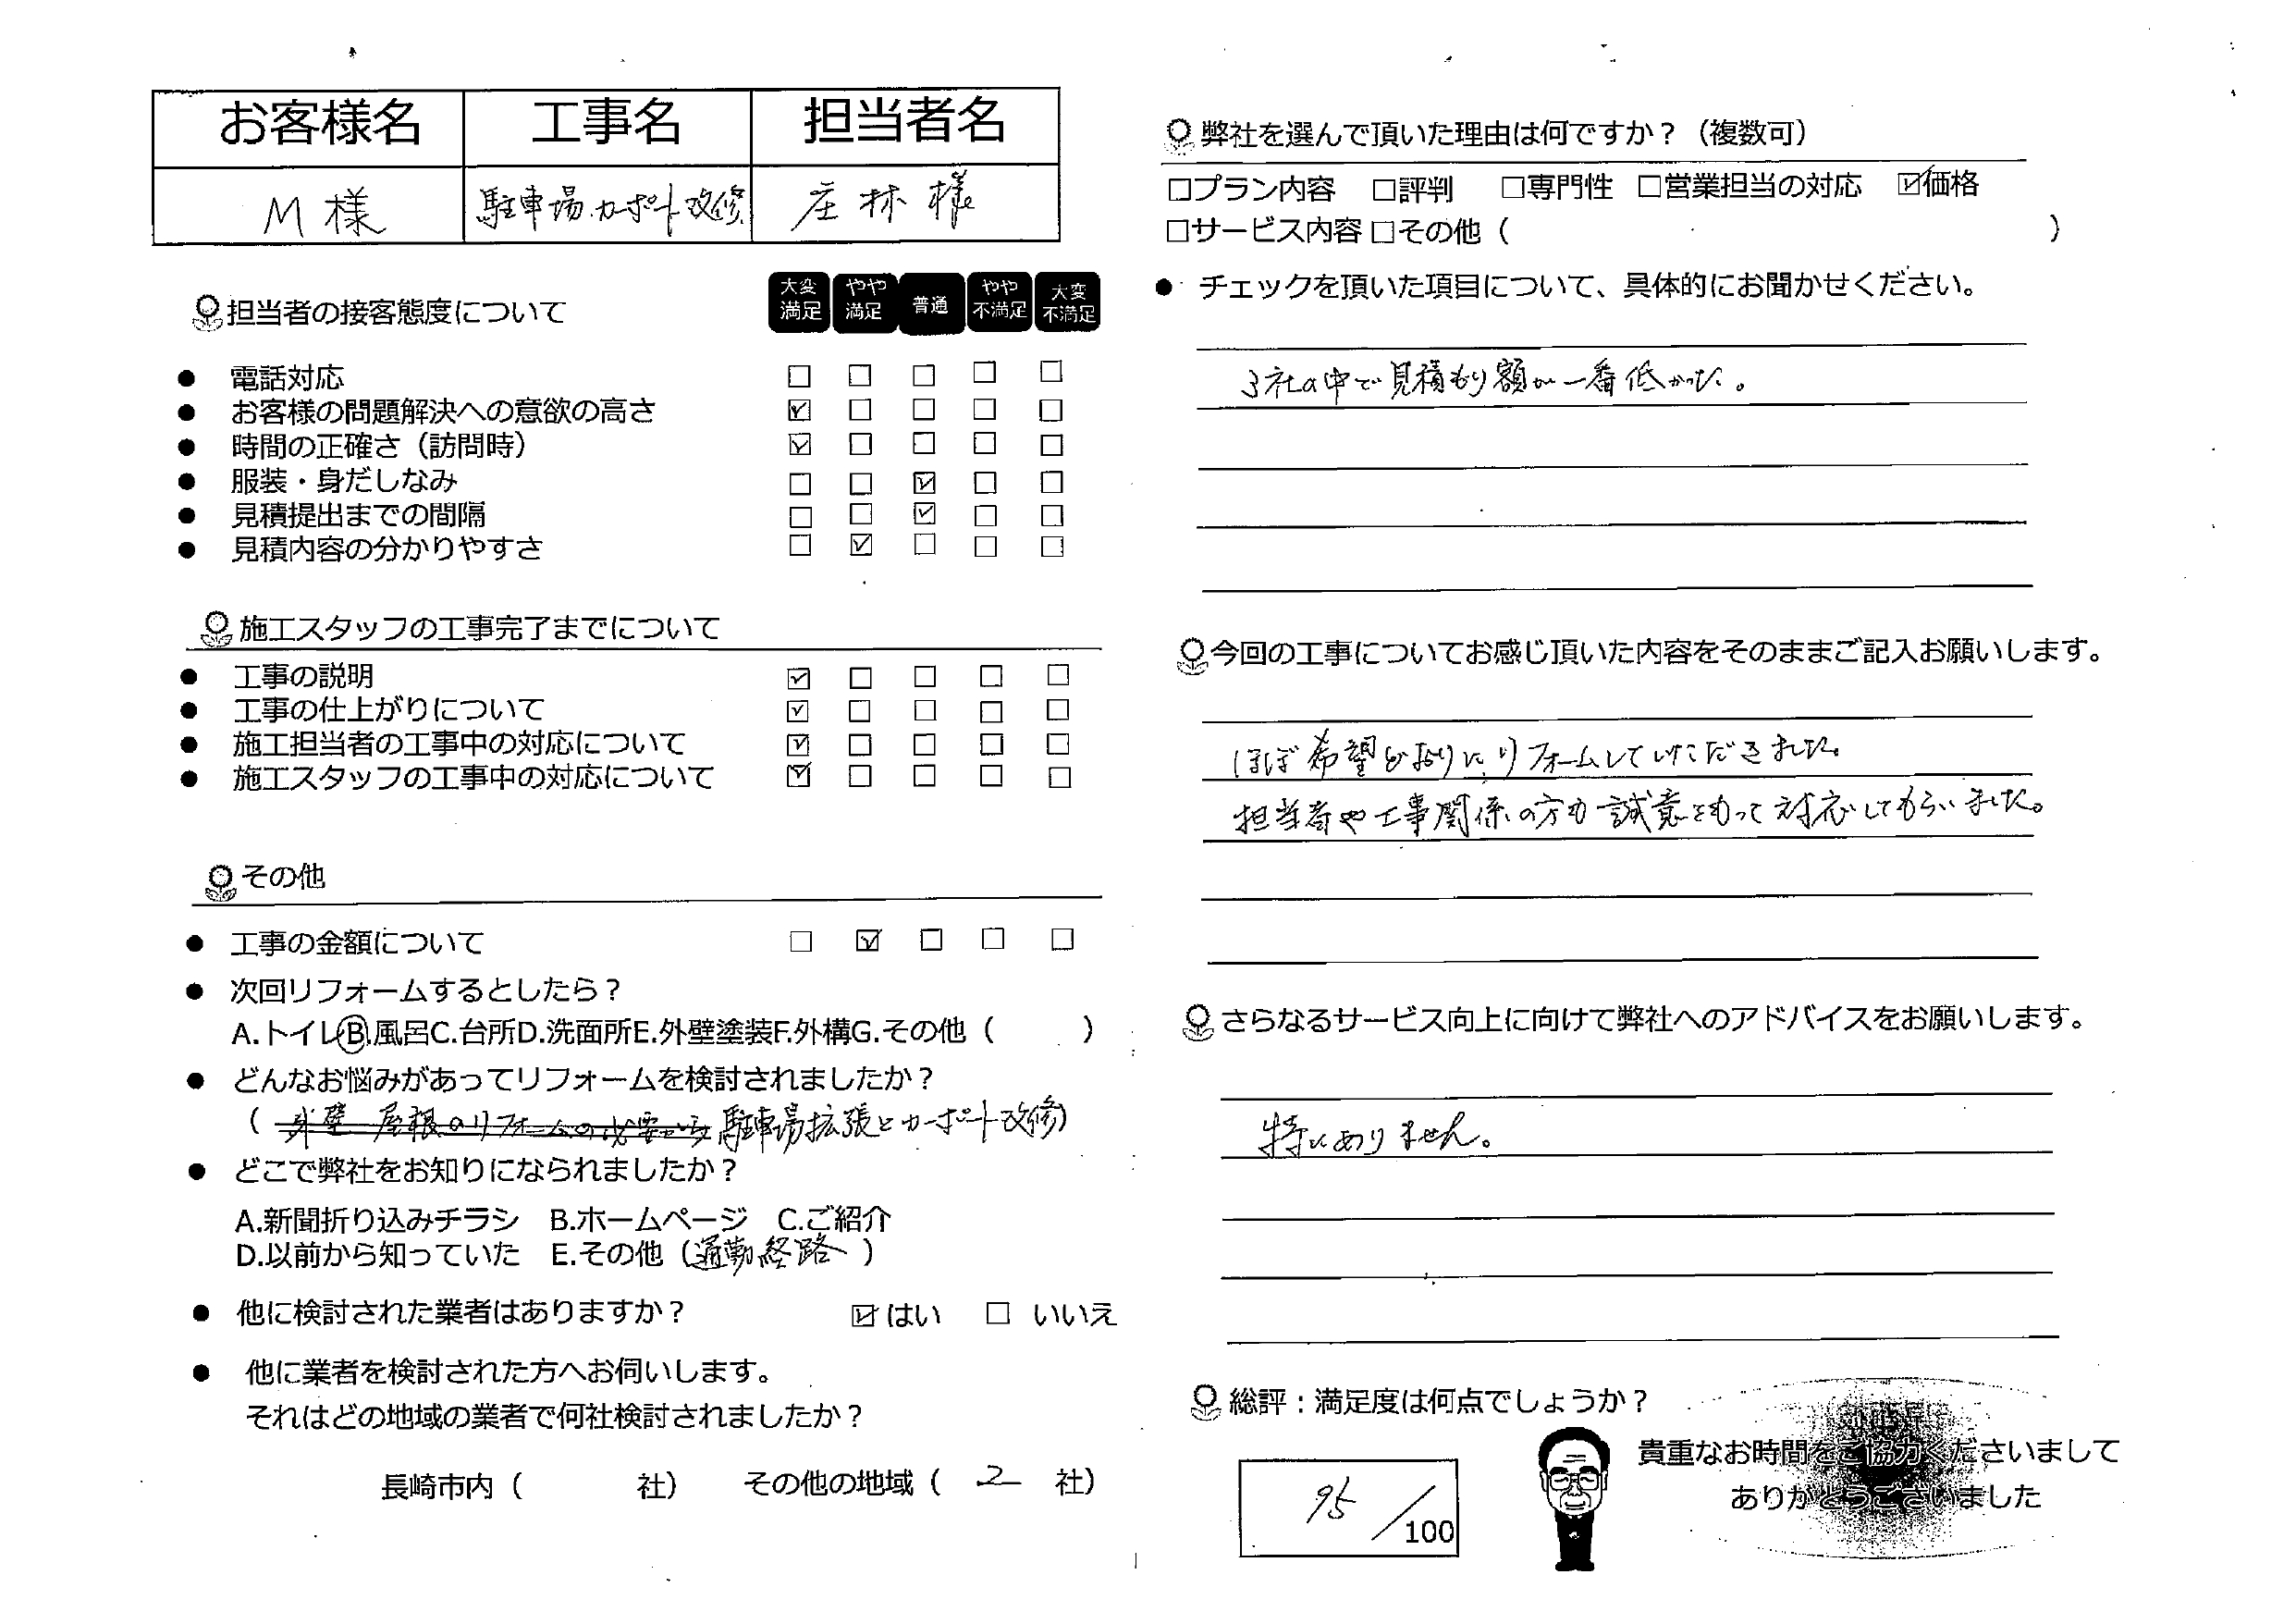 お客様名 工事名 担当者名
M様 駐車場.カーポート改修 庄林様
担当者の接客態度について 大変満足 やや満足 普通 やや不満足 大変不満足
● 電話対応 □ □ □ □ □
● お客様の問題解決への意欲の高さ ☑ □ □ □ □
● 時間の正確さ（訪問時） ☑ □ □ □ □
● 服装・身だしなみ □ □ ☑ □ □
● 見積提出までの間隔 □ □ ☑ □ □
● 見積内容の分かりやすさ □ ☑ □ □ □
施工スタッフの工事完了までについて
● 工事の説明 ☑ □ □ □ □
● 工事の仕上がりについて ☑ □ □ □ □
● 施工担当者の工事中の対応について ☑ □ □ □ □
● 施工スタッフの工事中の対応について ☑ □ □ □ □
その他
● 工事の金額について □ ☑ □ □ □
● 次回リフォームするとしたら？
A.トイレB.風呂C.台所D.洗面所E.外壁塗装F.外構G.その他（ ）
● どんなお悩みがあってリフォームを検討されましたか？
（外壁 屋根のリフォームの必要から 駐車場拡張とカーポート改修）
● どこで弊社をお知りになられましたか？
A.新聞折り込みチラシ B.ホームページ C.ご紹介
D.以前から知っていた E.その他（通勤経路）
● 他に検討された業者はありますか？ ☑はい □ いいえ
● 他に業者を検討された方へお伺いします。
それはどの地域の業者で何社検討されましたか？
長崎市内（ 社） その他の地域（ 2 社）
弊社を選んで頂いた理由は何ですか？（複数可）
□プラン内容 □評判 □専門性 □営業担当の対応 ☑価格
□サービス内容 □その他（ ）
● チェックを頂いた項目について、具体的にお聞かせください。
3社の中で見積もり額が一番低かった。
今回の工事についてお感じ頂いた内容をそのままご記入お願いします。
ほぼ希望どおりに、リフォームしていただきました。
担当者や工事関係の方も誠意をもって対応してもらいました。
さらなるサービス向上に向けて弊社へのアドバイスをお願いします。
特にありません。
総評：満足度は何点でしょうか？
95／100
貴重なお時間をご協力くださいまして
ありがとうございました